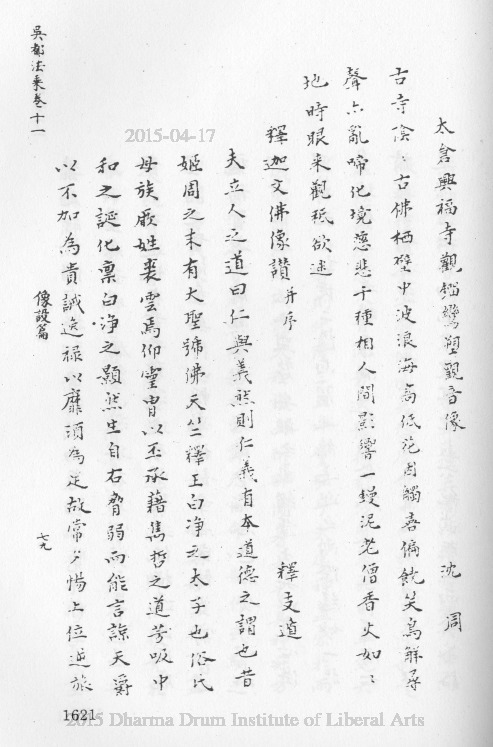 吳都法乘卷十一
太倉興福寺觀鎦鸞塑觀音像
沈周
古寺陰〻古佛栖壁中波浪海高低花因觸喜偏饒笑鳥解尋
聲亦亂啼化境慈悲千種相人間影響一鏝泥老僧香火如〻
地時眼来觀祗欲迷
釋迦文佛像讃并序
釋支遁
夫立人之道曰仁與義然則仁義有本道德之謂也昔
姬周之末有大聖號佛天竺釋王白净之太子也俗氏
母族厥姓裘雲焉仰靈胄以丕承藉雋哲之遺芳吸中
和之誕化禀白净之顯然生自右脅弱而能言諒天爵
以不加為貴誠逸祿以靡須為足故常夕惕上位逆旅
像設篇
七九
1621
2015-04-17
2015 Dharma Drum Institute of Liberal Arts